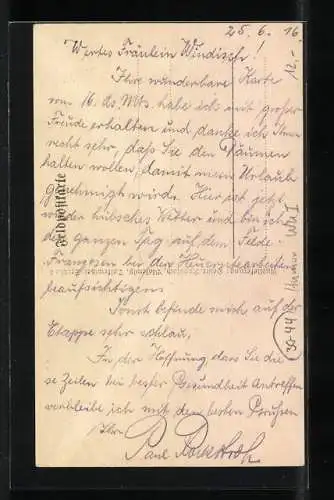 25.6.16
Wertes Fräulein Windisch!
Ihre wunderbare Karte
vom 16. ds. Mts. habe ich mit großer
Freude erhalten und danke ich Ihnen
recht sehr, dass Sie den Däumen
halten wollen, damit mein Urlaub
genehmigt wird. Hier ist jetzt
wieder hübsches Wetter und bin ich
den ganzen Tag auf dem Felde
Franzosen bei den Heuerntearbeiten
beaufsichtigen.
Sonst befinde mich auf der
Etappe sehr wohlau.
In der Hoffnung, dass Sie die
se Zeilen bei bester Gesundheit antreffen
verbleibe ich mit den besten Grüssen
Ihr
Paul
Feldpostkarte
12,-
Humor WW I